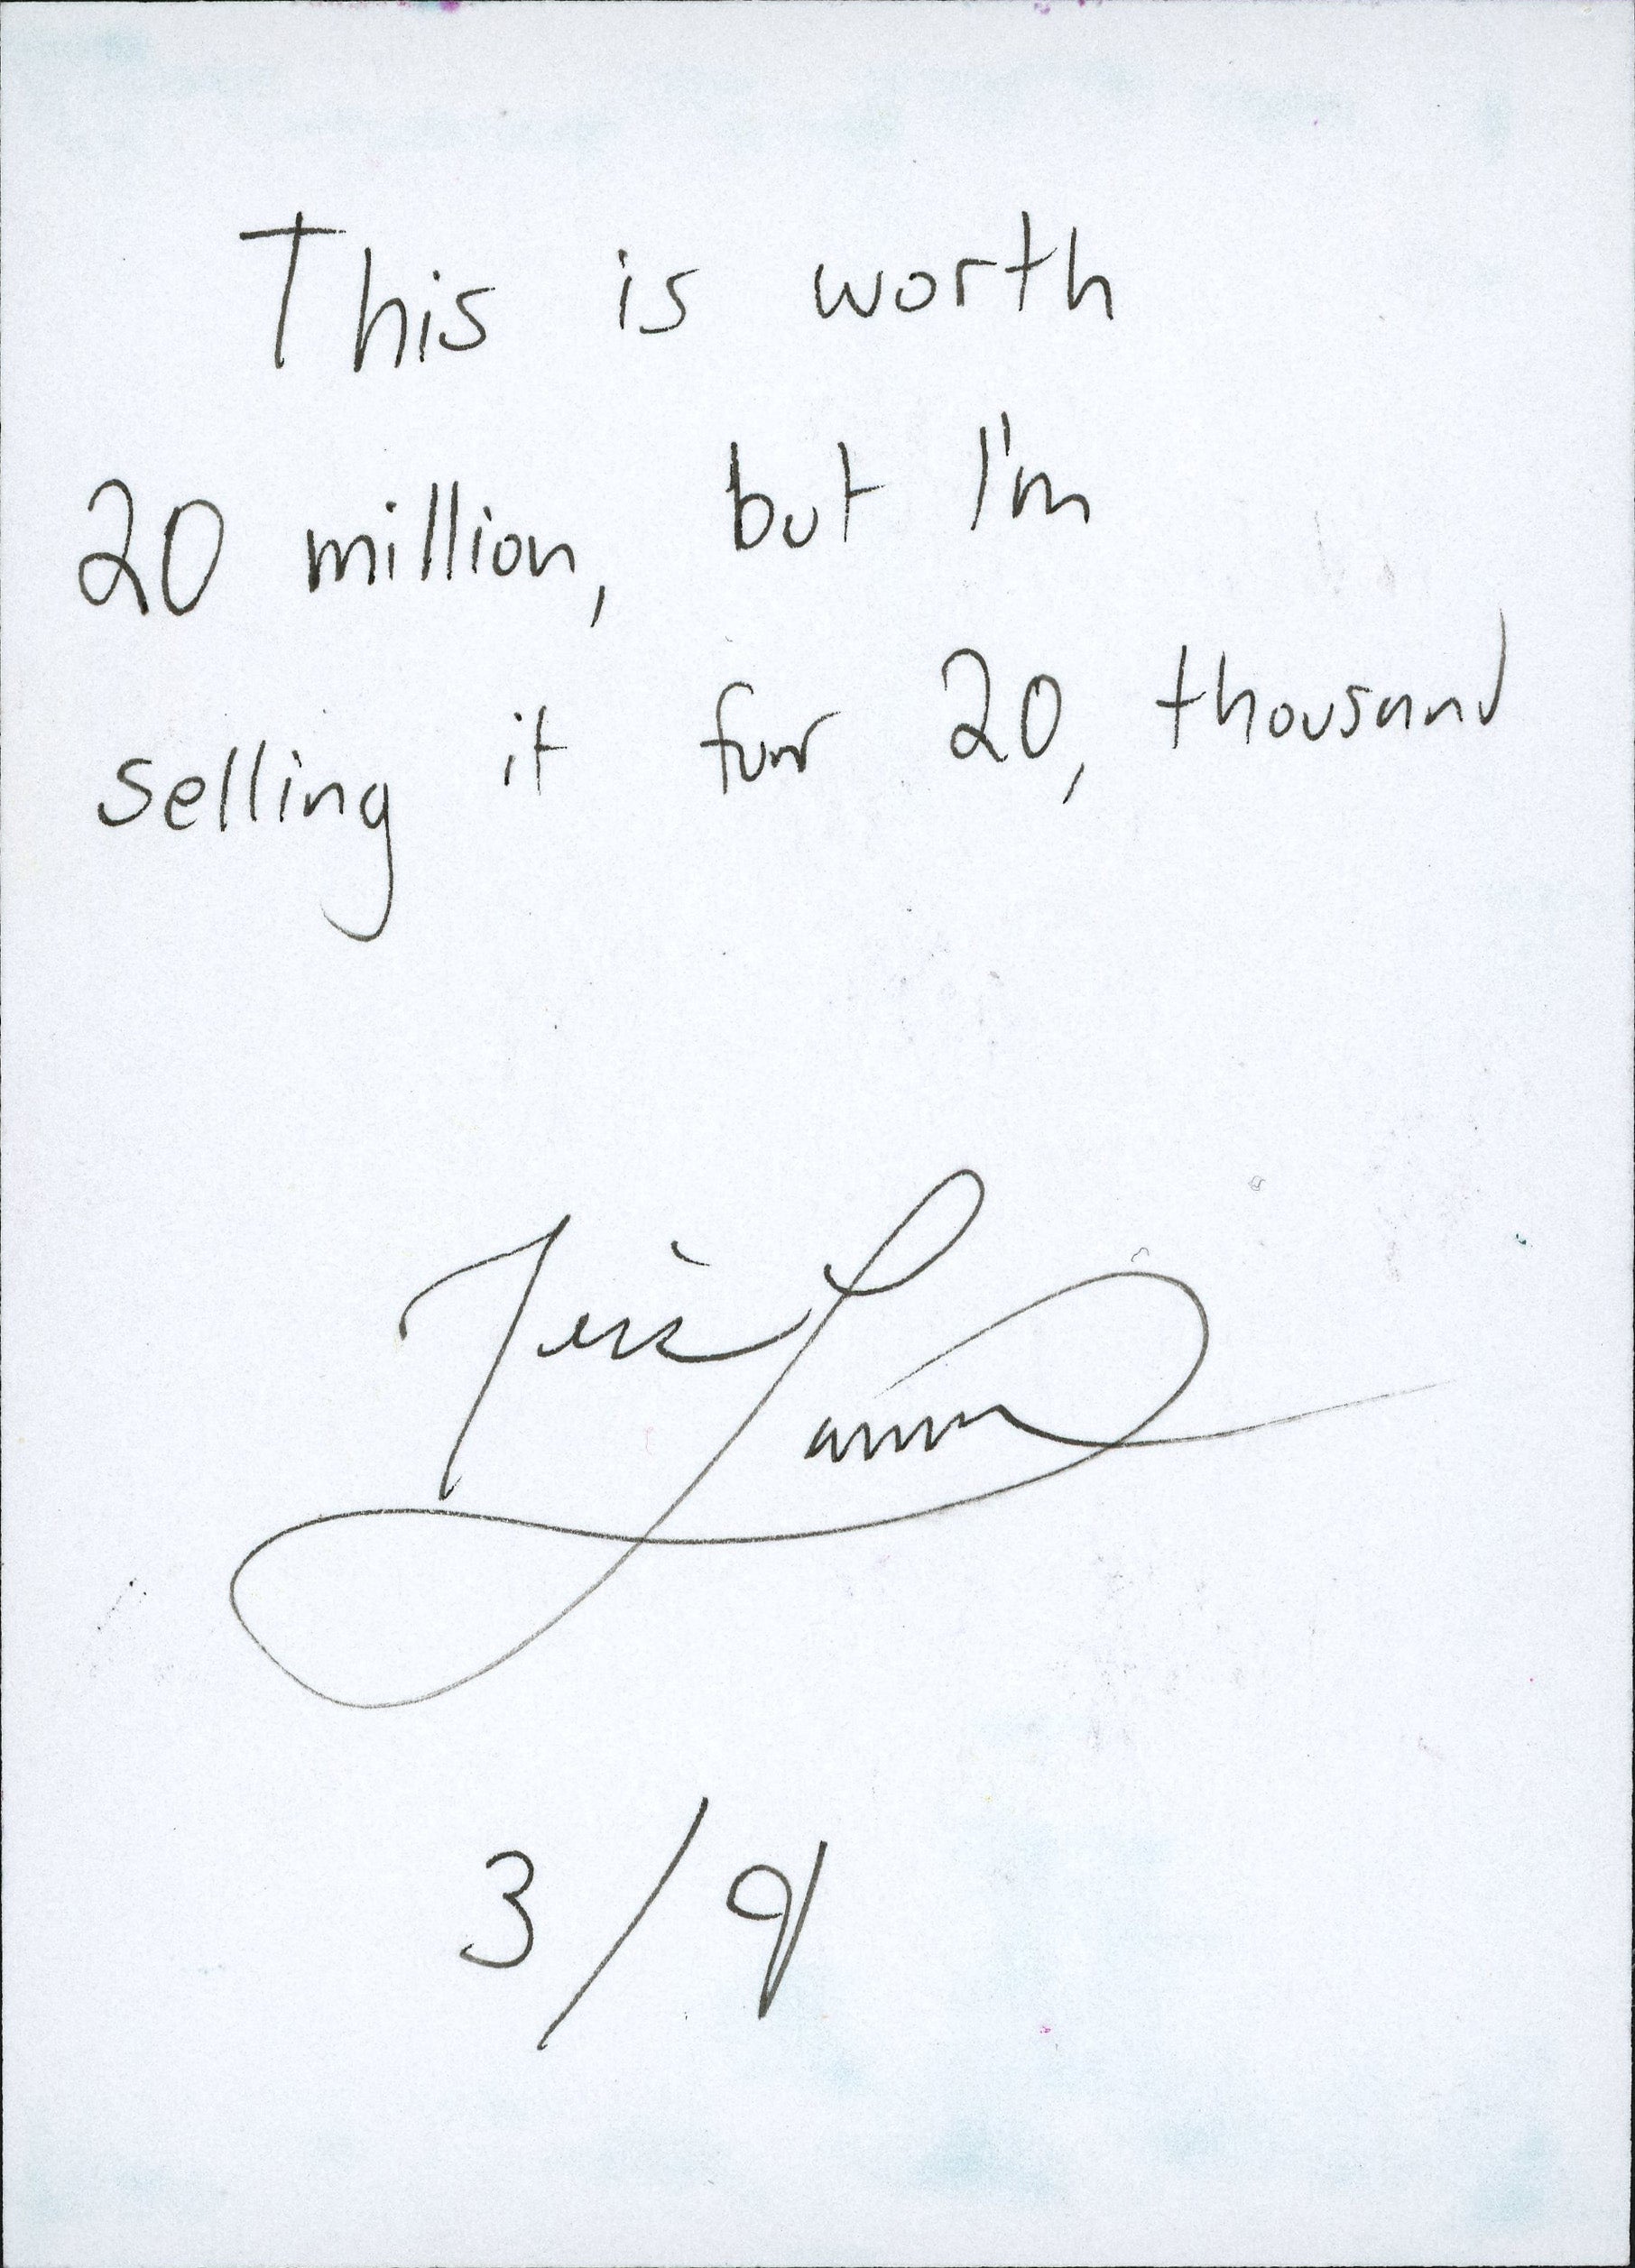 This is worth
20 million, but I'm
selling it for 20, thousand
3/9